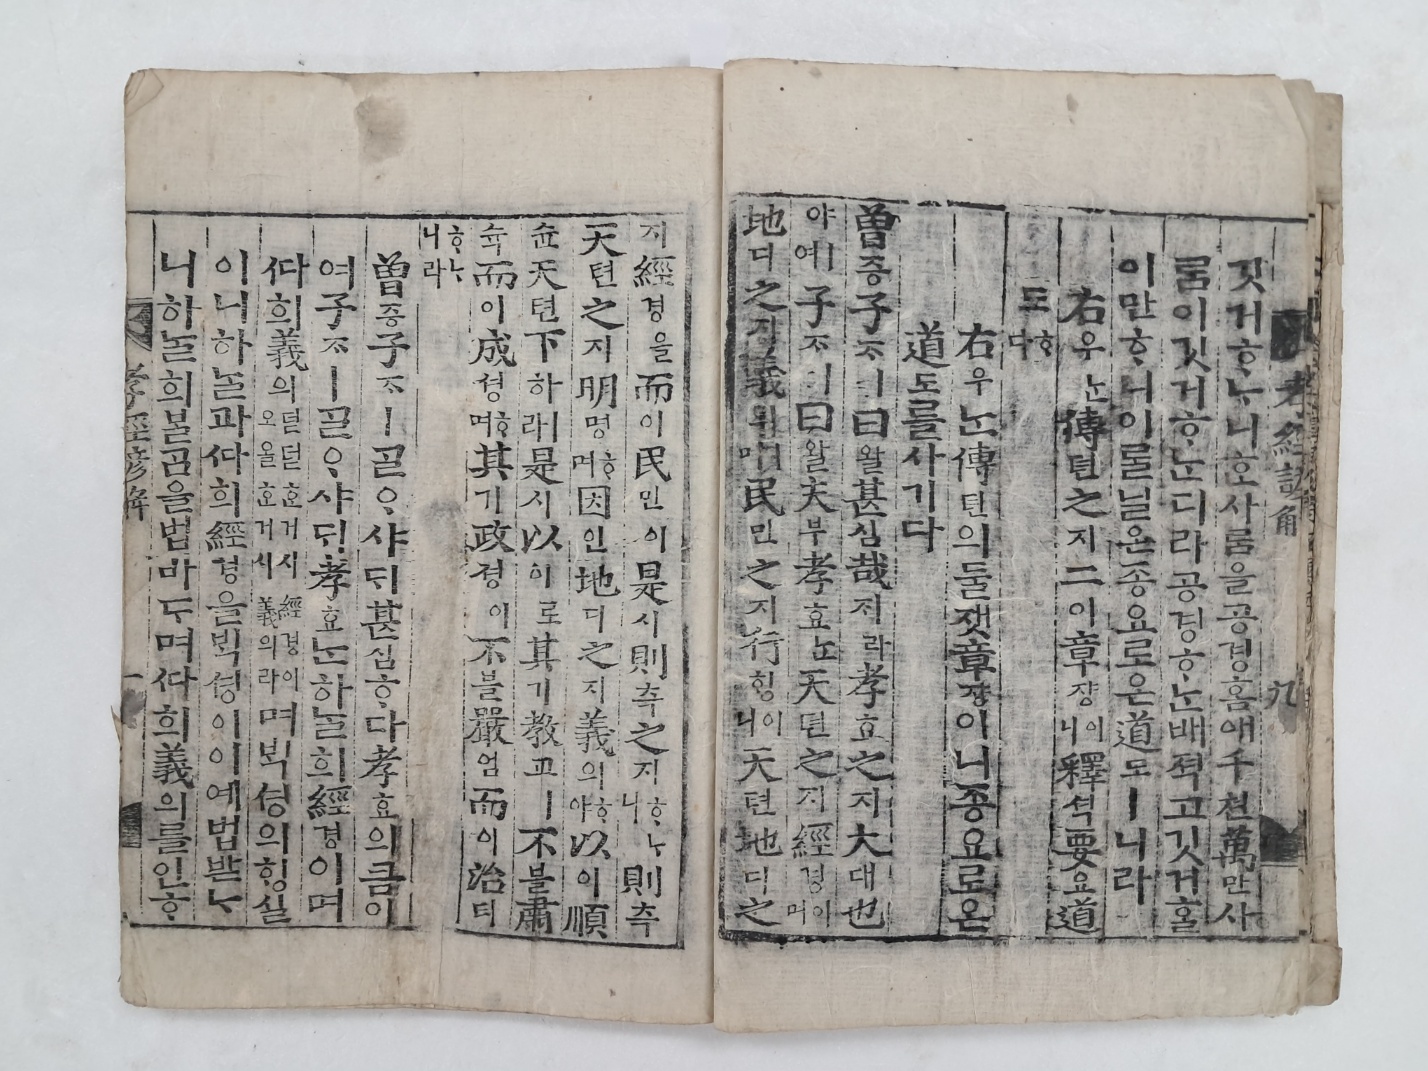 孝經諺解 九
깃거ᄒᆞᄂᆞ니ᄒᆞᆫ사ᄅᆞᆷ을공경홈애千쳔萬만사
ᄅᆞᆷ이깃거ᄒᆞᄂᆞᆫ디라공경ᄒᆞᄂᆞᆫ배젹고깃거홀
이만ᄒᆞ니이ᄅᆞᆯ닐온종요로온道도ㅣ니라
右우ᄂᆞᆫ傳뎐之지二이章쟝이니釋셕要요道
도ᄒᆞ다
右우ᄂᆞᆫ傳뎐의둘잿章쟝이니종요로온
道도를사기다
曾증子ᄌᆞㅣ曰왈甚심哉ᄌᆡ라孝효之지大대也
야예子ᄌᆞㅣ曰왈夫부孝효ᄂᆞᆫ天텬之지經경이며
地디之지義의며民민之지行ᄒᆡᆼ이니天텬地디之
지經경을而이民민이是시則측之지ᄒᆞᄂᆞ니則측
天텬之지明명ᄒᆞ며因인地디之지義의ᄒᆞ야以이順
슌天텬下하ㅣ라是시以이로其기敎교ㅣ不블肅
슉而이成셩ᄒᆞ며其기政졍이不블嚴엄而이治티
ᄒᆞᄂᆞ니라
曾증子ᄌᆞㅣᄀᆞᆯᄋᆞ샤ᄃᆡ甚심ᄒᆞ다孝효의큼이
여子ᄌᆞㅣᄀᆞᆯᄋᆞ샤ᄃᆡ孝효ᄂᆞᆫ하ᄂᆞᆯ희經경이며
ᄯᅡ희義의덛덛ᄒᆞᆫ거시經경이오올ᄒᆞᆫ거시義의라며ᄇᆡᆨ셩의ᄒᆡᆼ실
이니하ᄂᆞᆯ과ᄯᅡ희經경을ᄇᆡᆨ셩이이예법받ᄂᆞ
니하ᄂᆞᆯ희ᄇᆞᆯ곰을법바ᄃᆞ며ᄯᅡ희義의를인ᄒᆞ
孝經諺解